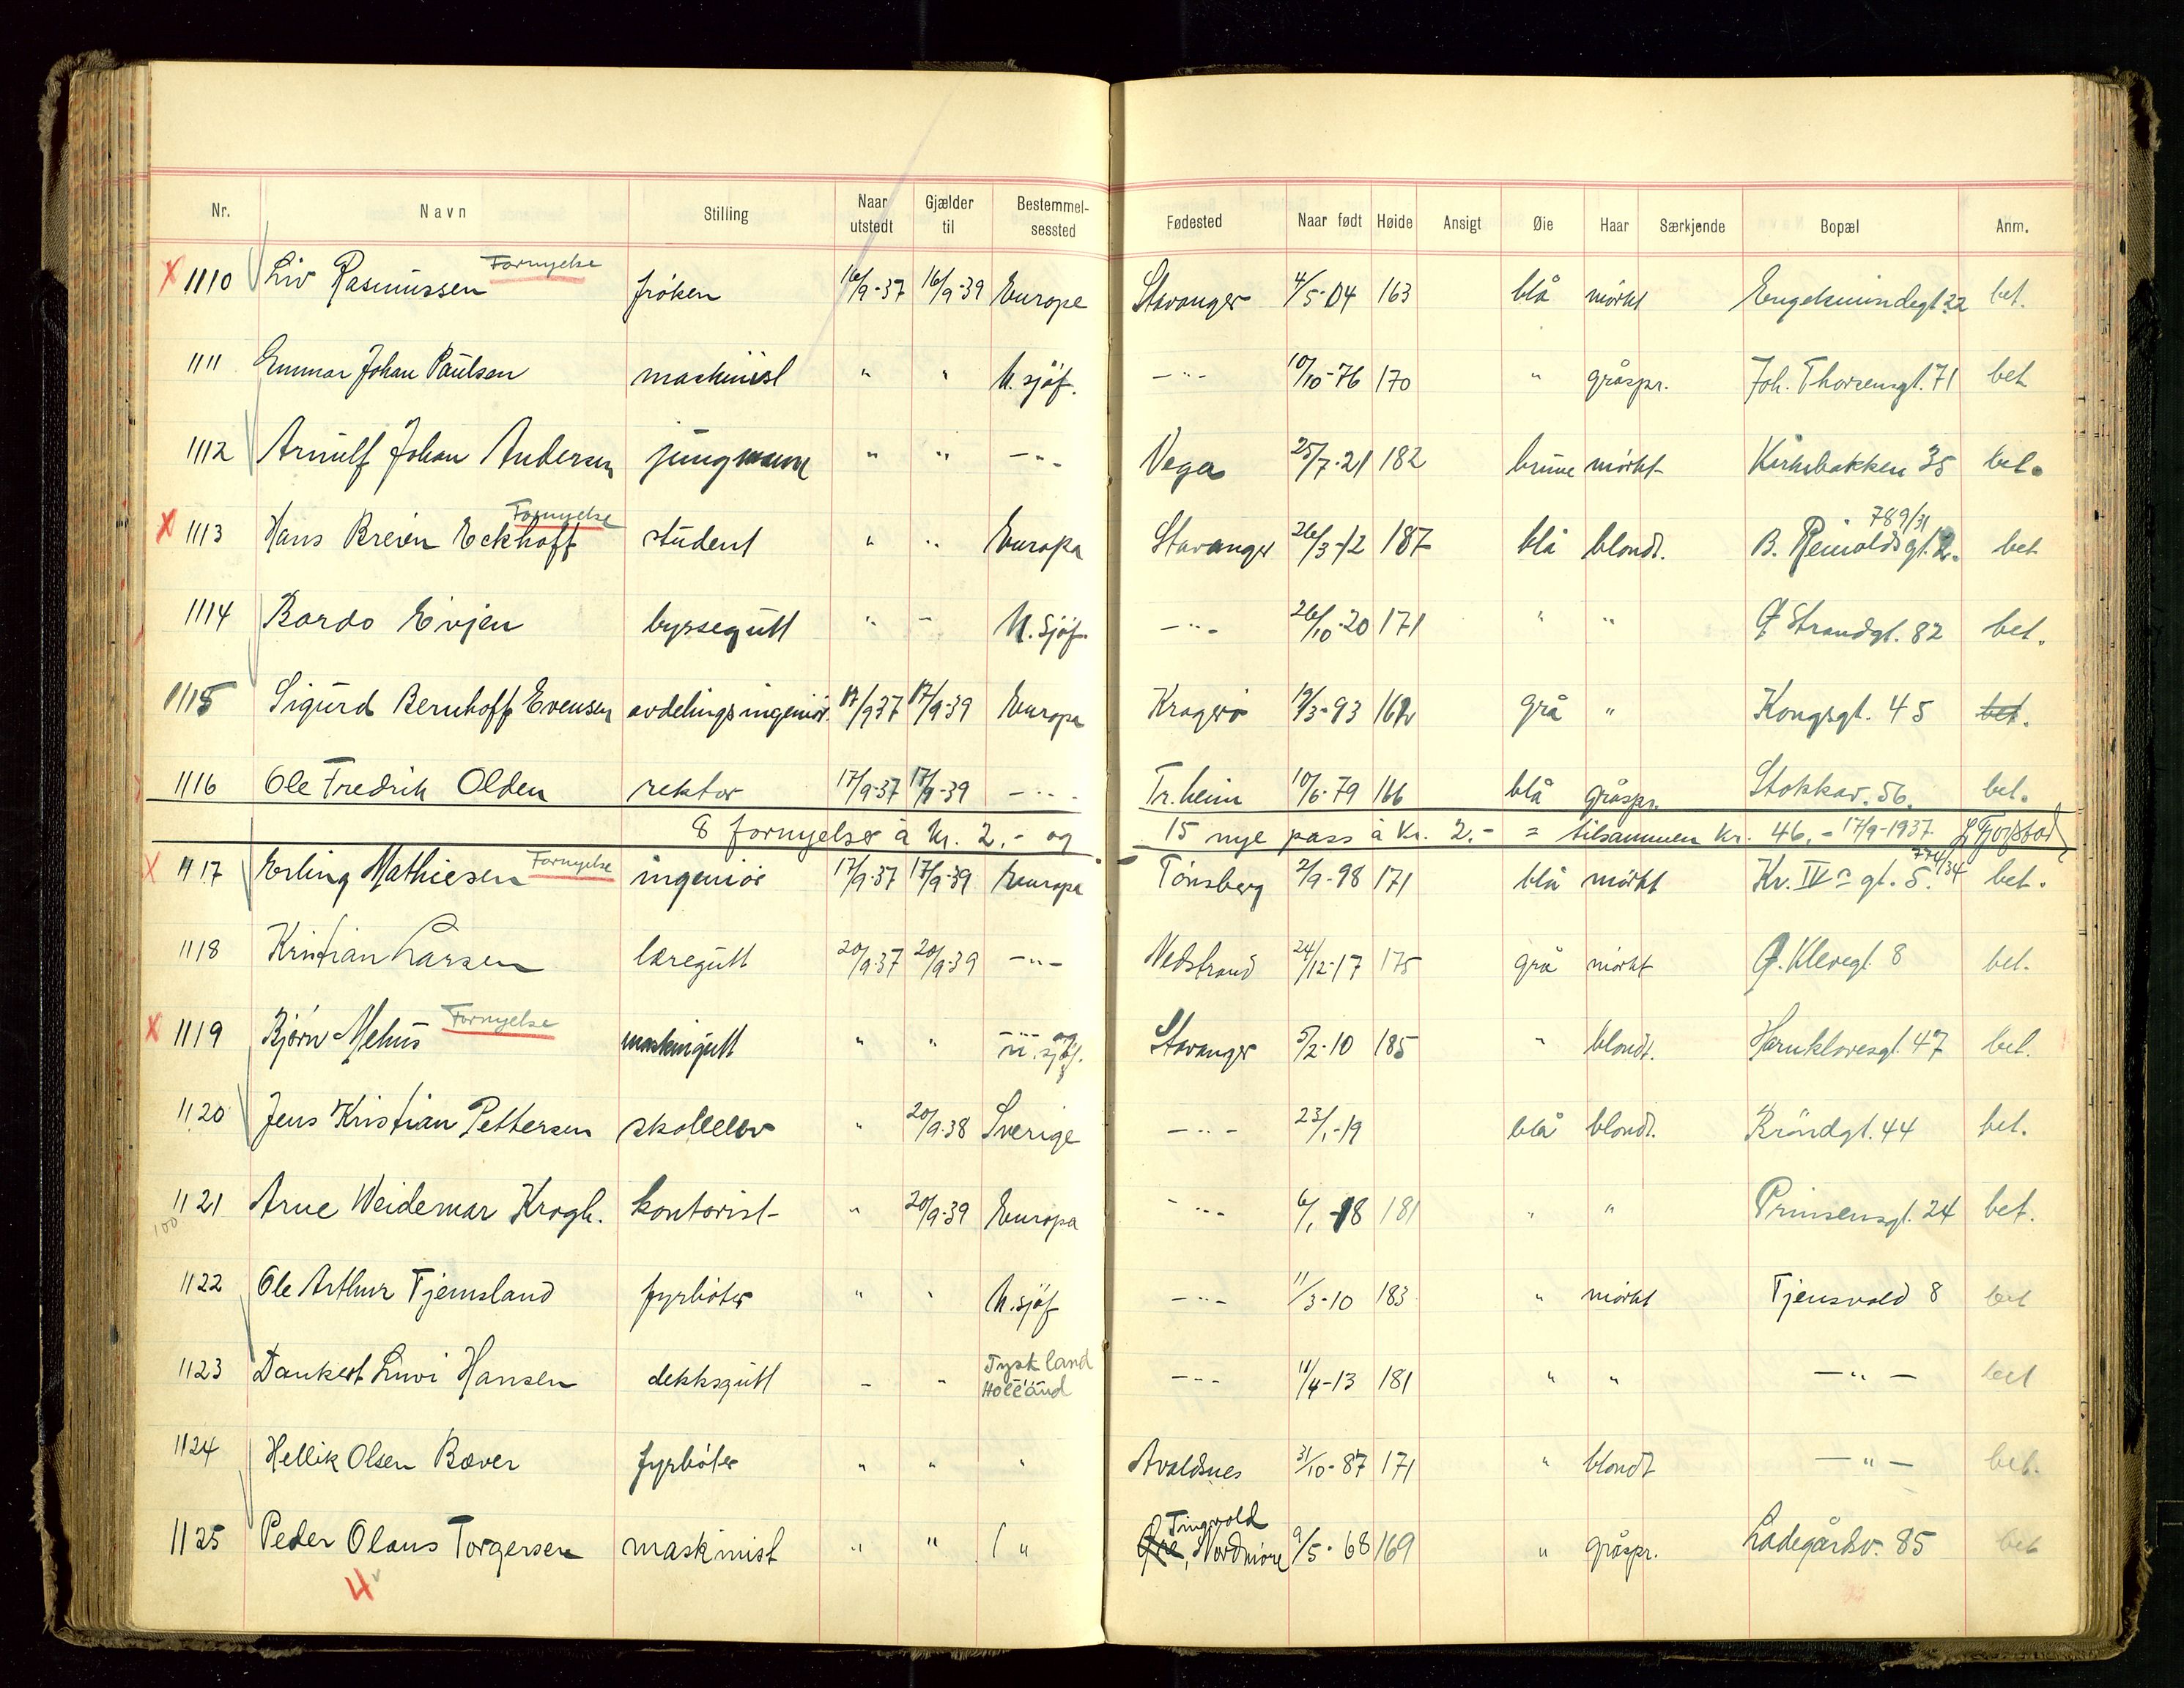 Nr. Navn Stilling Naar utstedt Gjælder til Bestemmel-sessted Fødested Naar født Høide Ansigt Øie Haar Særkjende Bopæl Anm.
x 1110 Liv Rasmussen Fornyelse frøken 16/9-37 16/9-39 Europa Stavanger 4/5-04 163 blå mørkt Engelsmindegt. 22 bet.
1111 Gunnar Johan Paulsen maskinist " " U. sjöf. -"- 10/10-76 170 " gråspr. Joh. Thorsensgt. 71 bet
1112 Arnulf Johan Andersen jungmann " " -"- Vega 25/7-21 182 brune mørkt Kirkebakken 35 bet.
x 1113 Hans Breien Eckhoff Fornyelse student " " Europa Stavanger 26/3-12 187 blå blondt. B. Reinoldsgt. 2. 789/31 bet
1114 Bardo Evjen byssegutt " - U. sjöf. -"- 26/10-20 171 " " Ø Strandgt. 82 bet.
1115 Sigurd Bernhoff Evensen avdelingsingeniør. 17/9 37 17/9-39 Europa Kragerø 19/3-93 162 grå " Kongsgt. 45 bet.
1116 Ole Fredrik Olden rektor 17/9-37 17/9-39 -"- Tr.heim 10/6-79 166 blå gråspr. Stokkav. 56. bet.
8 fornyelser à kr. 2,- og 15 nye pass à kr. 2.- = tilsammen kr. 46,- 17/9-1937
x 1117 Erling Mathiesen Fornyelse ingeniør 17/9-37 17/9-39 Europa Tønsberg 2/9-98 171 blå mørkt Kr. IVs gt. 5. 774/34 bet.
1118 Kristian Larsen læregutt 20/9-37 20/9-39 -"- Nedstrand 24/12-17 175 grå mørkt Ø. Klevegt. 8 bet.
x 1119 Bjørn Mehus Fornyelse maskingutt " " -"- og u. sjöf. Stavanger 5/2-10 185 " blondt. Harukloresgt. 47 bet.
1120 Jens Kristian Pettersen skoleelev " 20/9-38 Sverige -"- 23/1-19 blå blondt. Brøndgt. 44 bet.
1121 100 Arne Weidemar Krogh. kontorist " 20/9-39 Europa -"- 6/1-18 181 " " Prinsensgt. 24 bet.
1122 Ole Arthur Tjemsland fyrbøter " " U. sjöf -"- 11/3-10 183 " mørkt Tjensvold 8 bet
1123 Dankert Livi Hansen dekksgutt - " Tyskland Holland -"- 11/4-13 181 " " -"- bet
1124 Hellik Olsen Bæver fyrbøter " " " Avaldsnes 31/10-87 171 " blondt -"- bet.
1125 Peder Olaus Torgersen maskinist " " " Øre, Tingvold Nordmøre 9/5-68 169 " gråspr. Ladegårdsv. 85 bet
4